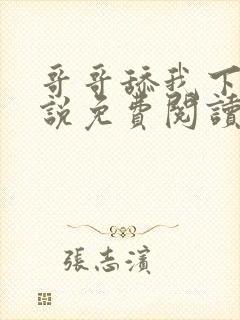 哥哥舔我下
說免費閱讀
張志濱